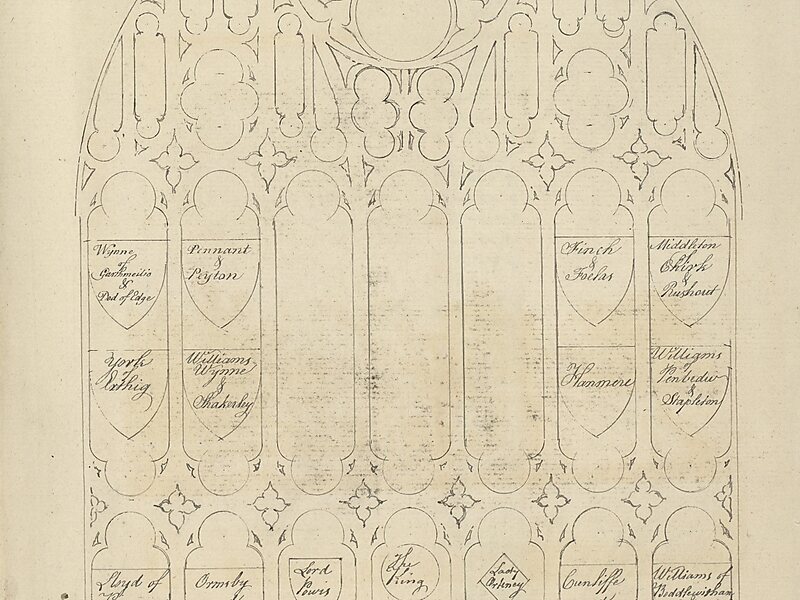 Wynne
of
Garthmeilio
&
Ped of Edge
Pennant
&
Peyton
Finch
&
Foelas
Middleton
of
Chirk
&
Rushout
York
of
Erthig
Williams
Wynne
&
Shakerley
Hanmere
Williams
of
Penbedw
&
Stapleton
Lloyd of
Ormsby
Lord
Powis
The
King
Lady
Orkney
Cunliffe
Williams of
Boddlewitham